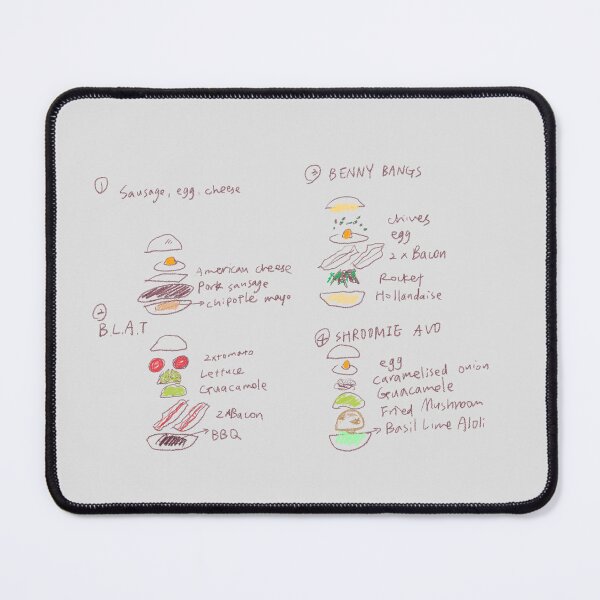 ① Sausage, egg. cheese
American cheese
Pork sausage
chipotle mayo
②
B.L.A.T
2xtomato
Lettuce
Guacamole
2xBacon
BBQ
③ BENNY BANGS
chives
egg
2xBacon
Rocket
Hollandaise
④ SHROOMIE AVO
egg
Caramelised onion
Guacamole
Fried Mushroom
Basil Lime Aioli